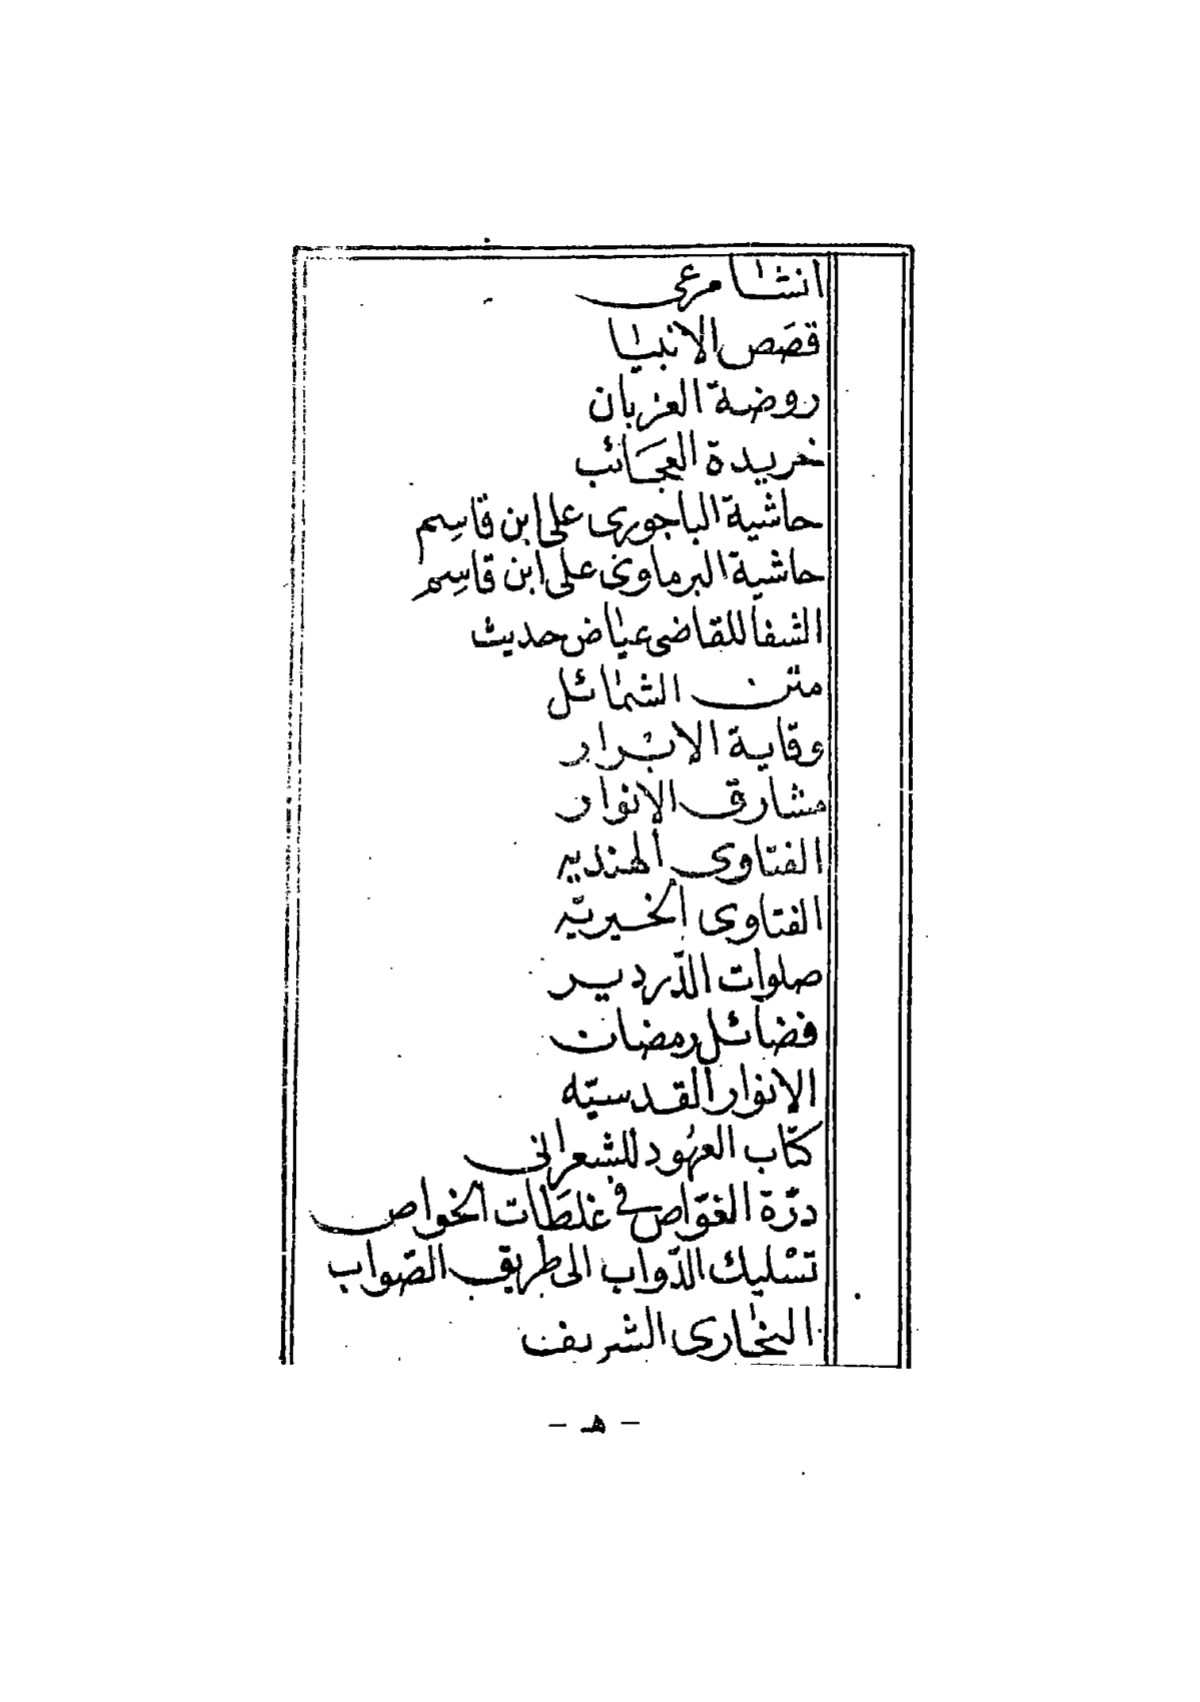 انشا مرعى
قصَص الانبيا
روضة العزبان
خريدة العجَائب
حاشية الباجورى على ابن قاسِم
حاشية البرماوى على ابن قاسِم
الشفا للقاضى عياض حديث
متن الشمائل
وقاية الابرار
مشارق الانوار
الفتاوى الهنديه
الفتاوى الخيريّه
صلوات الدّردير
فضائل رمضان
الانوار القدسيّه
كتاب العهُود للشعرانى
درّة الغوّاص فى غلطَات الخواص
تسْليك الدّواب الى طريق الصّواب
البخارى الشريف
– هـ –